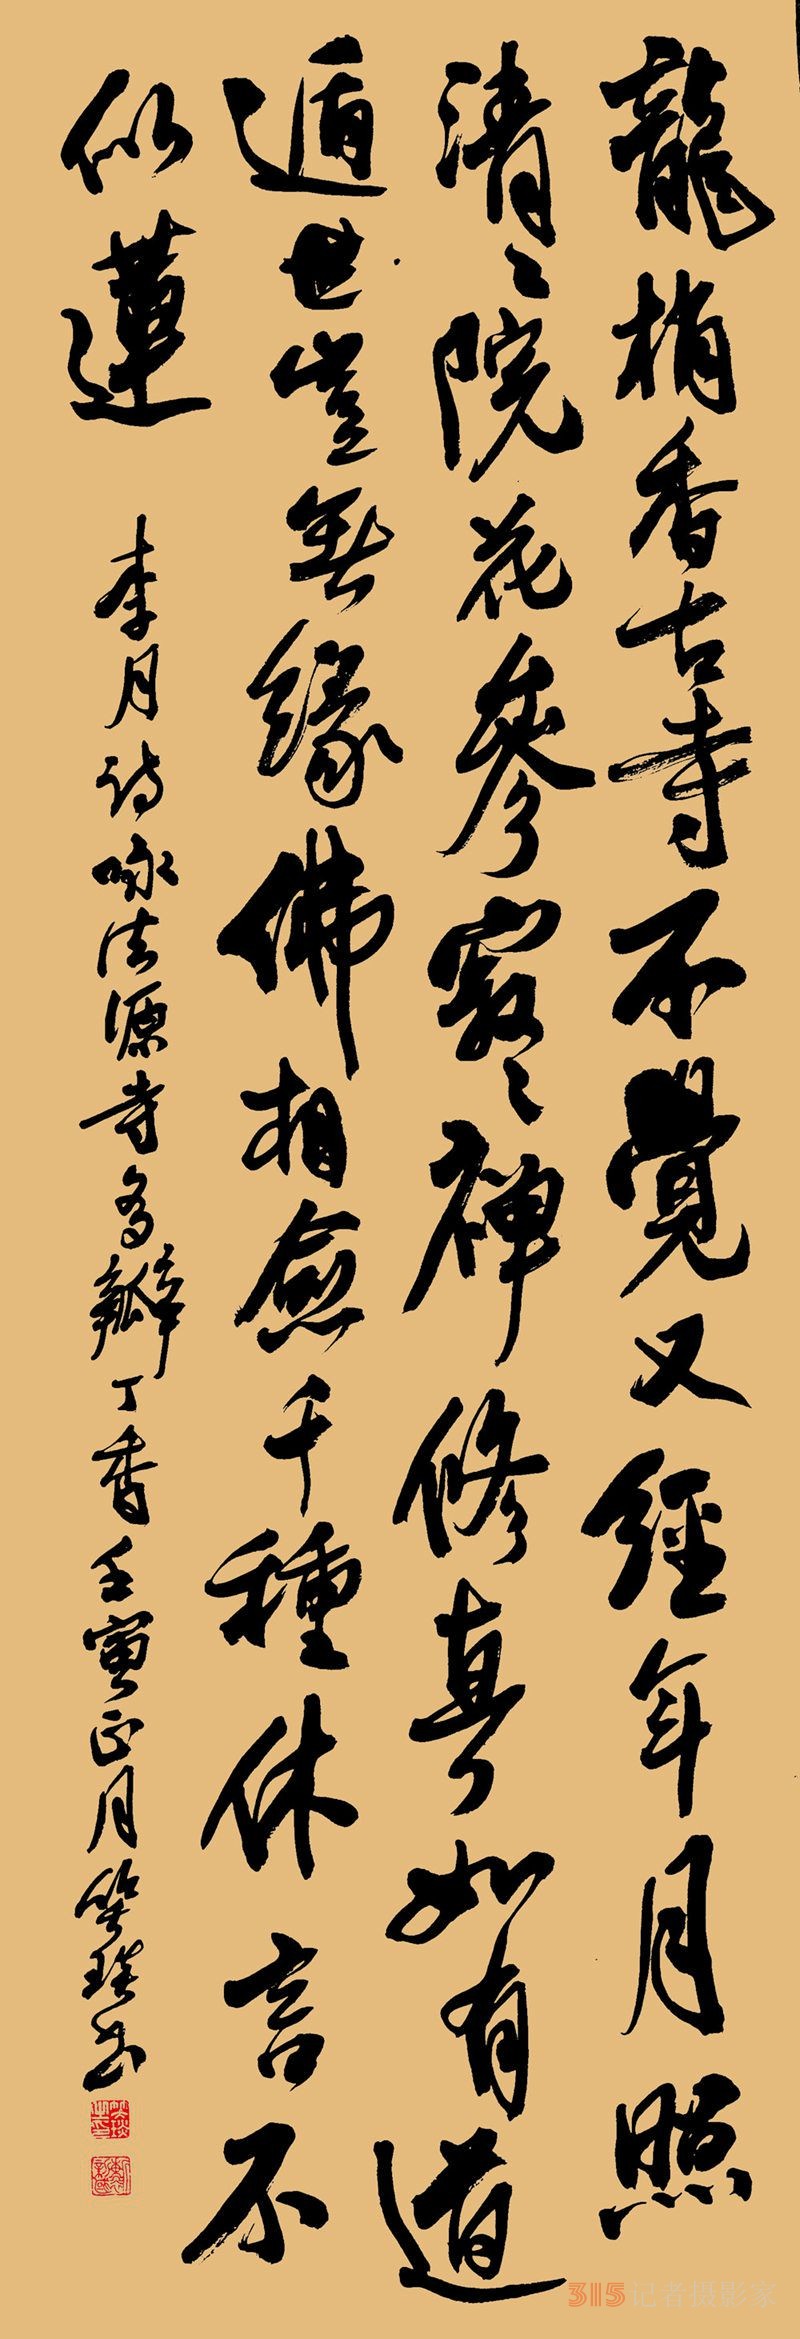 龍梢香古寺不覺又經年月照
清〻院花參寂〻禅修真如有道
遁世豈無緣佛相愈千種休言不
似蓮
李月詩咏法源寺多瓣丁香壬寅正月笑琰书
315记者摄影家